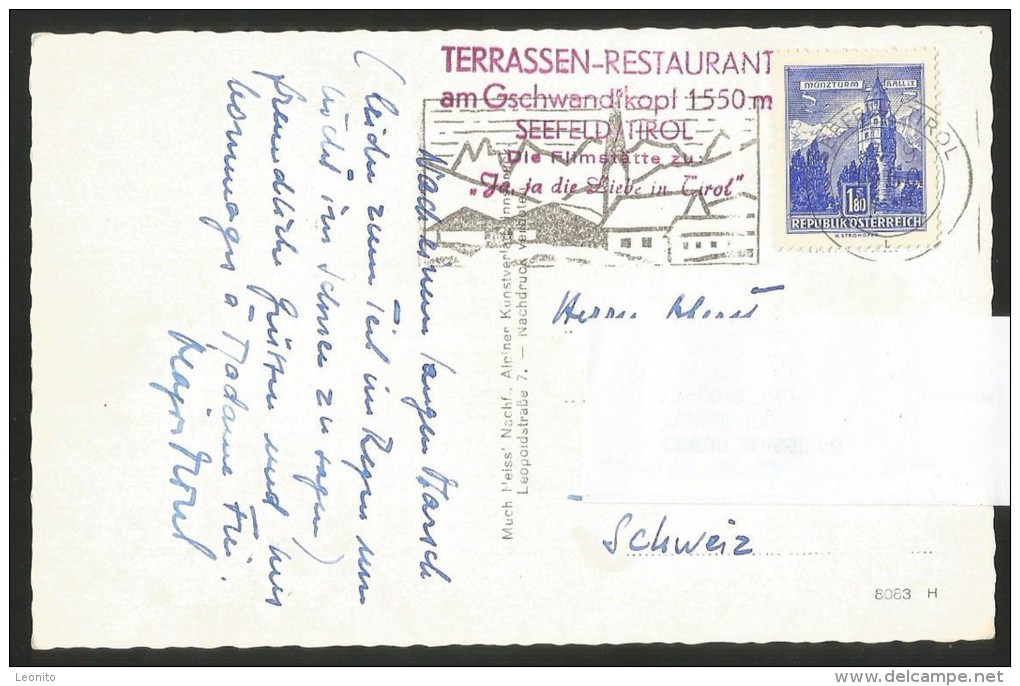 TERRASSEN-RESTAURANT
am Gschwandtkopf 1550 m
SEEFELD/TIROL
Die Filmstätte zu:
„Ja, ja die Liebe in Tirol"
MÜNZTURM HALL i.T.
1.80
REPUBLIK ÖSTERREICH
SEEFELD TIROL
Nach einem langen Marsch
(leider zum Teil im Regen um
nicht im Schnee zu sagen)
freundliche Grüsse und
a Madame
Much Heiss' Nachf., Alpiner Kunstverlag, Inns
Leopoldstraße 7. — Nachdruck verboten
Herrn
Schweiz
8083 H
Leonito
www.delcampe.net